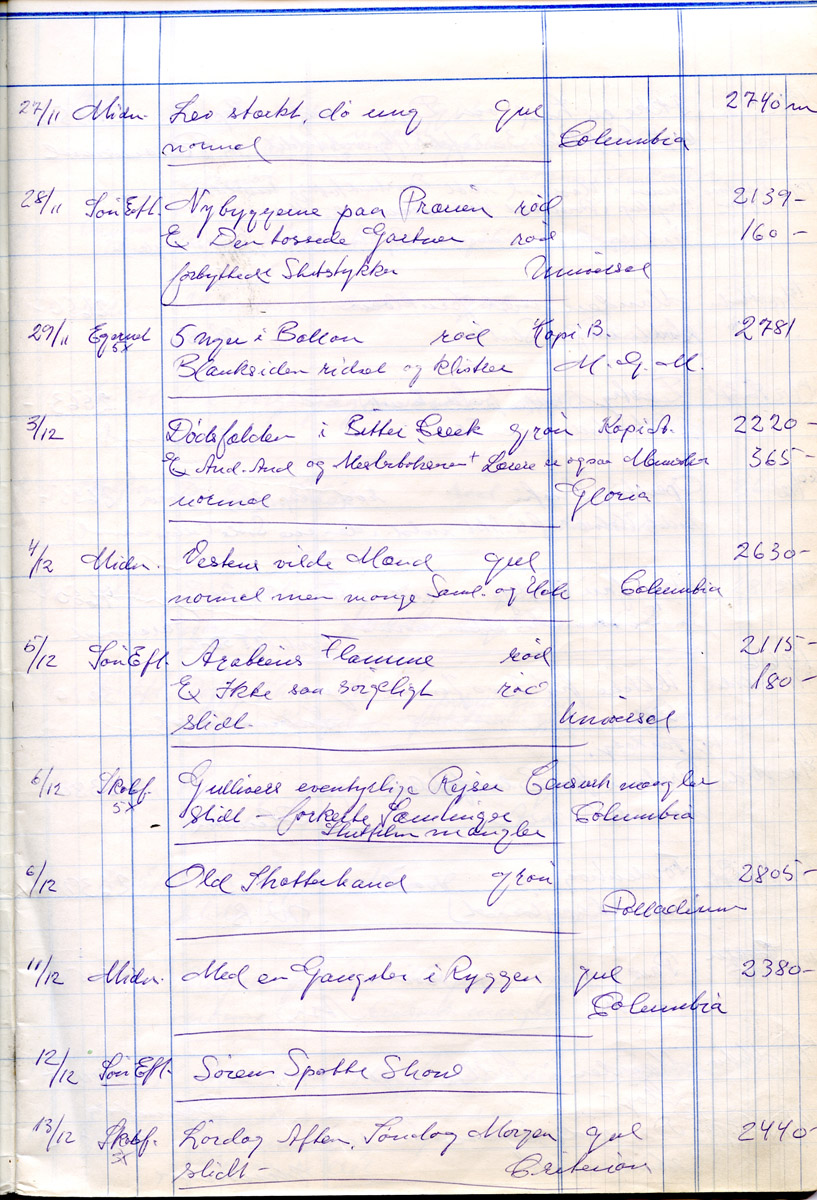 27/11 Midn. Lev stærkt, dø ung gul 2740 m
normal Columbia
28/11 SønEft. Nybyggerne paa Prærien rød 2139-
E Den tossede Gartner rød 160-
forbyttede Slutstykker Universal
29/11 5 uger i Ballon rød Kopi B. 2781
5x
Blanksiden ridset og klistret M.G.M.
3/12 Dødsfælden i Bitter Creek grøn Kopi 2220-
E And. And og + Løven er ogsaa 365-
normal Gloria
4/12 Midn. Vestens vilde Mænd gul 2630-
normal men mange Saml. og Hak Columbia
5/12 SønEft. Arabiens Flamme rød 2115-
E Ikke saa sørgeligt rød 180-
slidt- Universal
6/12 Skolef. Gullivers eventyrlige Rejser Censurk mangler
5x
slidt - forkerte Samlinger Columbia
Slutfilm mangler
6/12 Old Shatterhand grøn 2805-
Palladium
11/12 Midn. Med en Gangster i Ryggen gul 2380-
Columbia
12/12 SønEft. Søren Spætte Show
13/12 Skolef. Lørdag Aften, Søndag Morgen gul 2440-
3x
slidt- Criterion